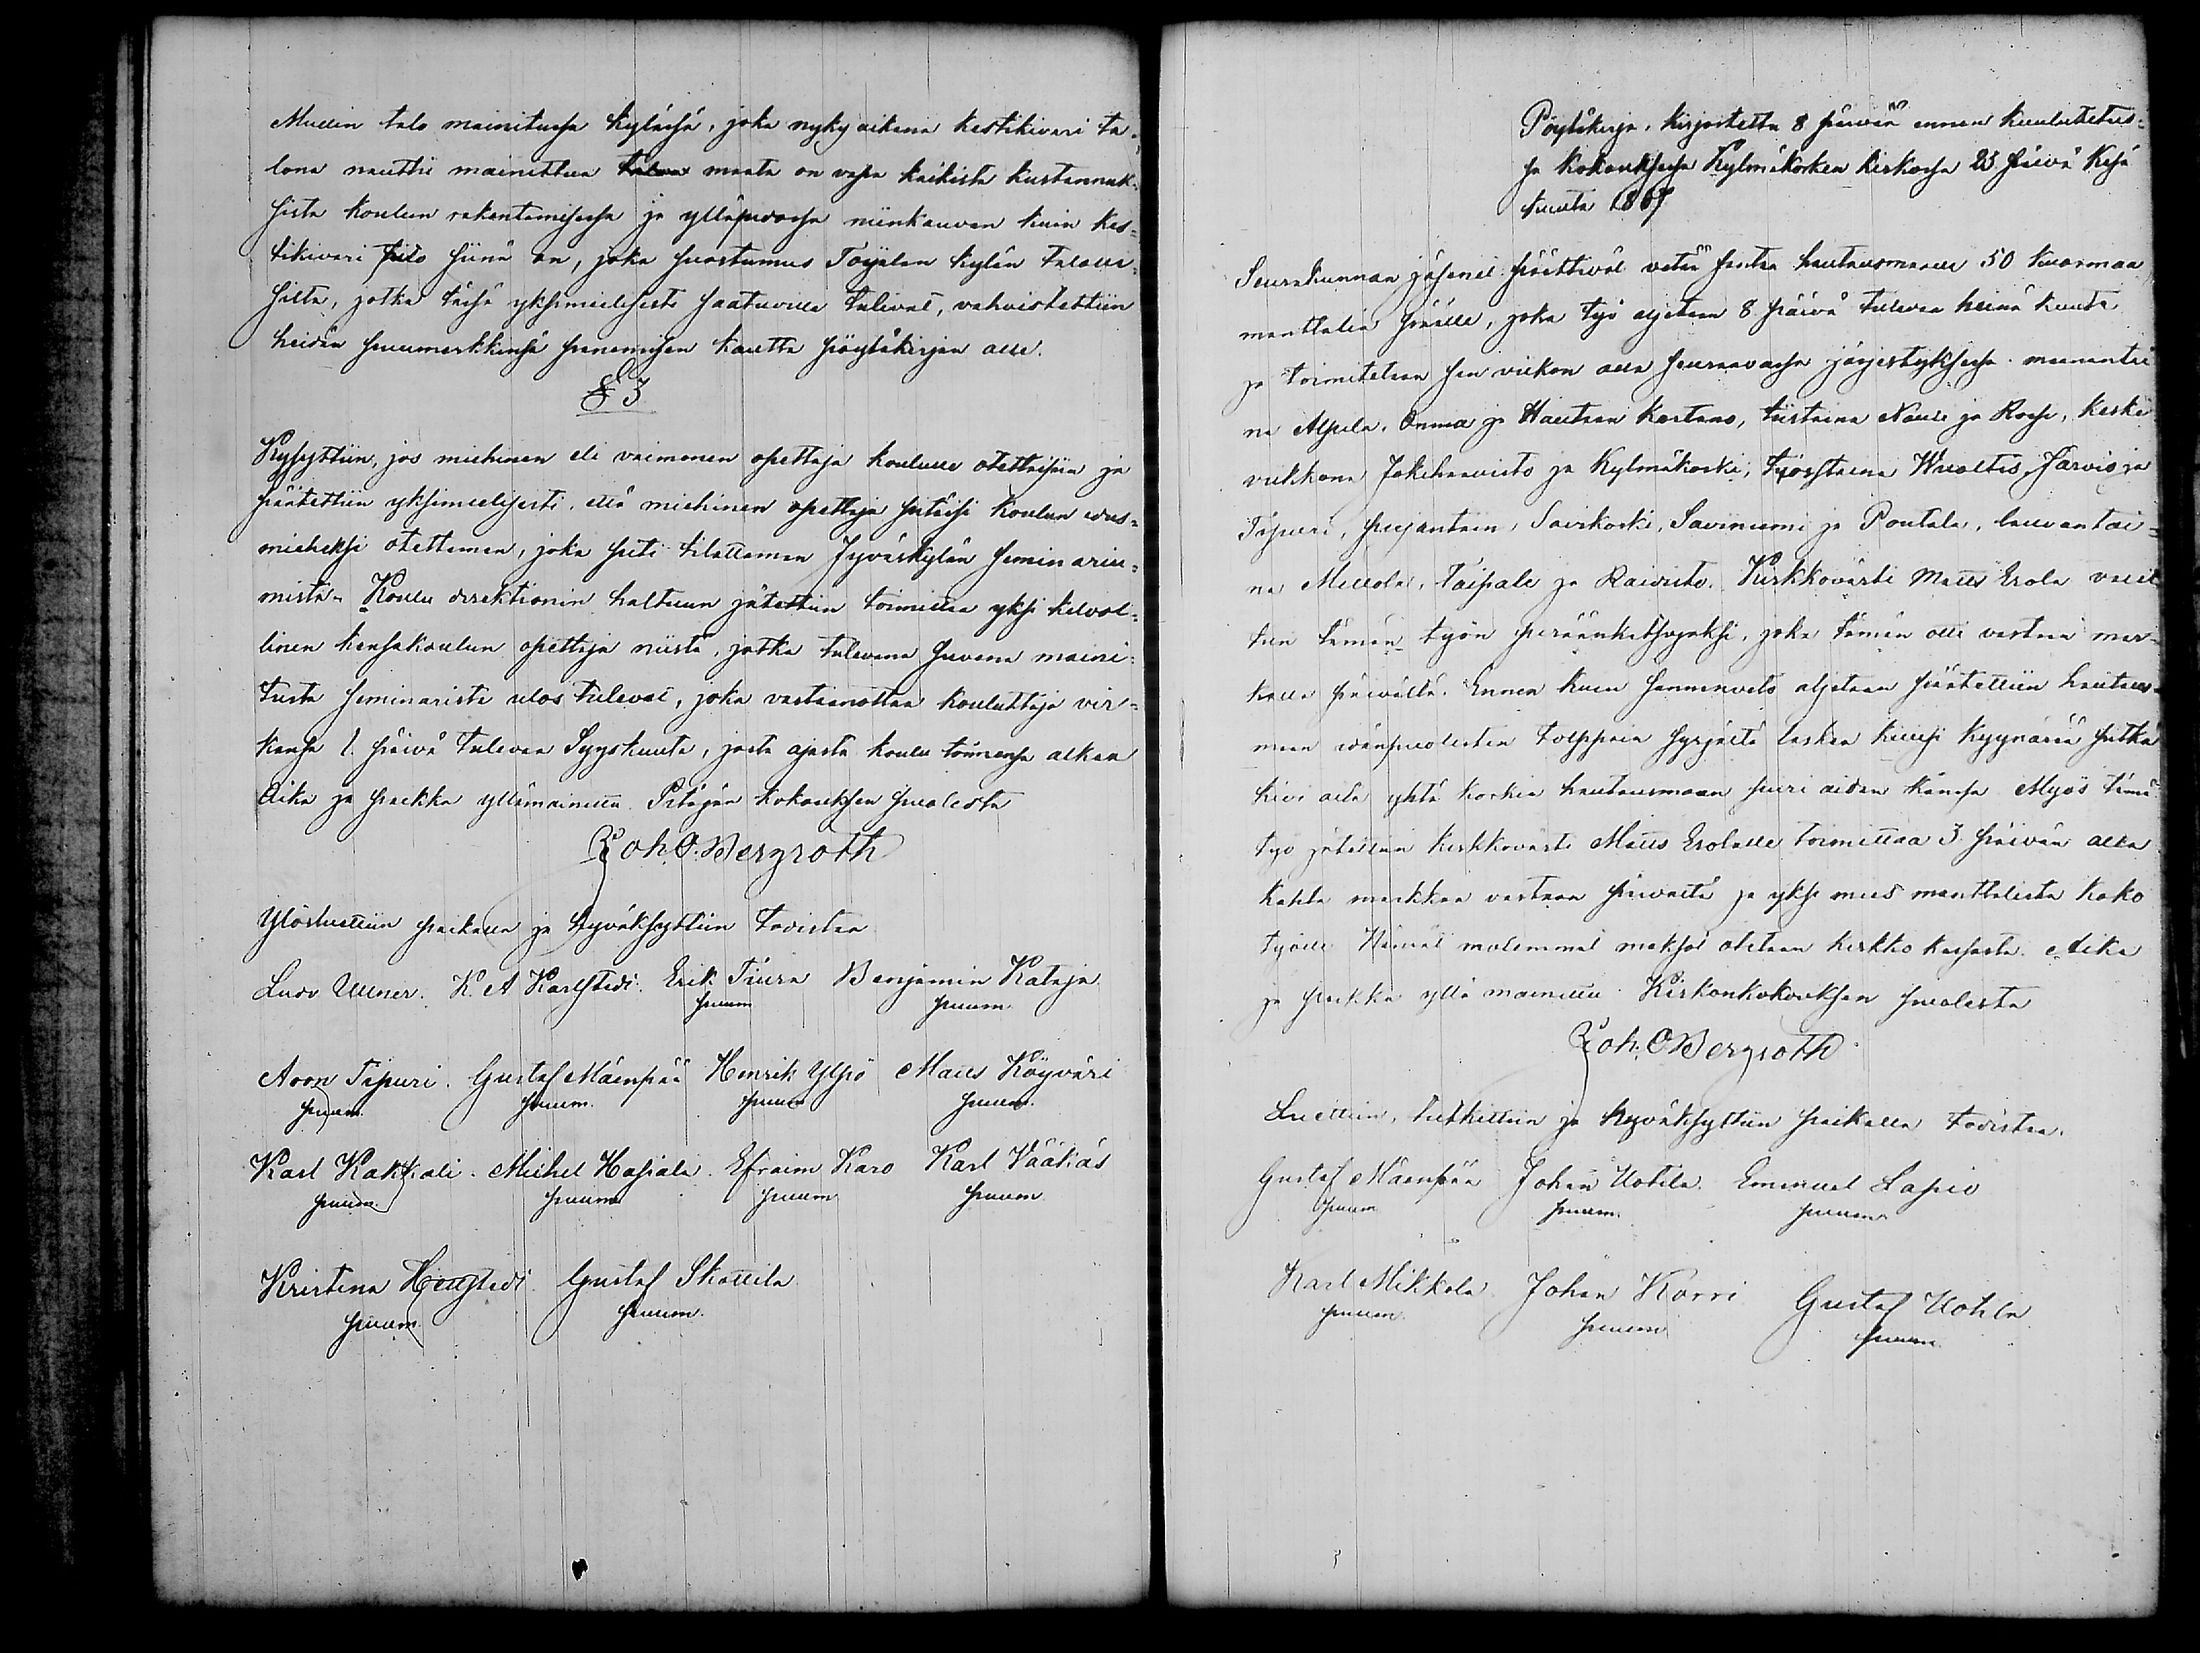 Mullin talo mainitussa kylässä, joka nyky aikana kestikivari ta-
lona nauttii mainittua maata on vapa kaikista kustannuk-
sista koulun rakentamisessa ja ylläpidossa niinkauvan kuin kes-
tikivari pito siinä on, joka suostumus Toijalan kylän taloui-
silta, jotka tässä yksimielisesti saatuvilla tulivat, vahvistettiin
heidän puumerkkinsä panemisen kautta pöytäkirjan alle.
§ 3
Kysyttiin, jos miehinen eli vaimonen opettaja koululle otettaisiin ja
päätettiin yksimielisesti, että miehinen opettaja pitäisi koulun edus-
mieheksi otettaman, joka piti tilattaman Jyväskylän seminariu-
mista. Koulu direktionin haltuun jätettiin toimittaa yksi kelvol-
linen kansakoulun opettaja niistä, jotka tulevana suvena maini-
tusta seminarista ulos tulevat, joka vastaanottaa kouluttaja vir-
kansa 1. päivä tulevaa Syyskuuta, josta ajasta koulu toimensa alkaa
Aika ja paikka yllämainittu. Pitäjän kokouksen puolesta
Joh. O. Bergroth
Ylösluettiin paikalla ja hyväksyttiin todistaa
Ludv Ullner. K. A Karlstedt. Erik Tiura Benjamin Kataja
puum puum
Aron Tipuri. Gustaf Mäenpää Henrik Ylpö Matts Köyväri
puum. puum. puum puum.
Karl Kakkali. Mikel Hapiala. Efraim Karo Karl Vääkäs
puum. puum puum puum
Kristina Hengstedt. Gustaf Skottila
puum. puum.
Pöytäkirja, kirjoitettu 8 päivää ennen kuulutetus-
sa kokouksessa Kylmäkosken kirkossa 23 päivä Kesä
kuuta 1867
Seurakunnan jäsenet päättivät vetää santaa hautausmaalle 50 kuormaa
manttalin päälle, joka työ aljetaan 8 päivä tulevaa heinä kuuta
ja toimitetaan sen viikon alla seuraavassa järjestyksessä. maanantai
na Alpila, Onma ja Hautaan kartano, tiistaina Nauli ja Rasi, keski
viikkona Jokihaavisto ja Kylmäkoski, tuorstaina Wualtis, Jarvis ja
Tipuri, perjantain, Sairkoski, Saviniemi ja Pontala, lauvantai-
na Mellola, Taipale ja Raivisto. Kirkkovärti Matts Erola valit
tiin tämän työn peräänkatsojaksi, joka tämän otti vastaan mar-
kalla päivältä. Ennen kuin sannanveto aljetaan päätettiin hautaus-
maan idänpuolisten tolppain syrjältä laskea kuusi kyynärää pitkä
kivi aita yhtä korkia hautausmaan suuri aidan kanssa Myös tämä
työ jätettiin kirkkovärti Matts Erolalle toimittaa 3 päivän alla
kahta markkaa vastaan päivältä ja yksi mies manttalista koko
työlle Nämät molemmat maksot otetaan kirkko kassasta. Aika
ja paikka yllä mainittu. Kirkonkokouksen puolesta
Joh. O. Bergroth
Luettiin, tutkittiin ja hyväksyttiin paikalla todistaa.
Gustaf Mäenpää Johan Uotila. Emanuel Lapio
puum puum. puum.
Karl Mikkola. Johan Korri Gustaf Uotila
puum. puum puum.